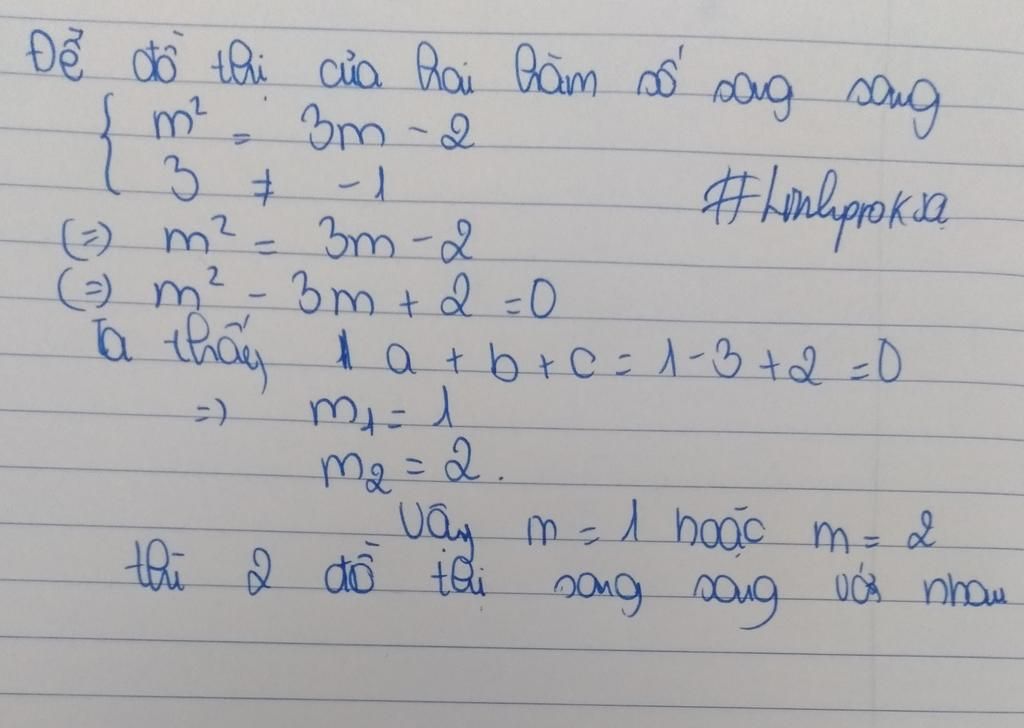 Để đồ thị của hai hàm số song song
m² = 3m - 2
3 ≠ -1
#Linhproksa
(=) m² = 3m - 2
(=) m² - 3m + 2 = 0
Ta thấy a + b + c = 1 - 3 + 2 = 0
=) m₁ = 1
m₂ = 2.
Vậy m = 1 hoặc m = 2
thì 2 đồ thị song song với nhau